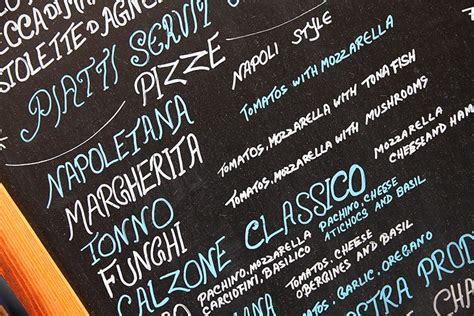 ECCA DI MA
STOLETTE D'AGNE
PIATTI SERVIT
PIZZE NAPOLI STYLE
NAPOLETANA TOMATOS WITH MOZZARELLA
MARGHERITA TOMATOS.MOZZARELLA WITH TONA FISH
IONNO TOMATOS.MOZZARELLA WITH MUSHROOMS
FUNGHI MOZZARELLA
CHEESE AND HAM
CALZONE CLASSICO
PACHINO.MOZZARELLA PACHINO.CHEESE
CARCIOFINI,BASILICO ATICHOCS AND BASIL
TOMATOS. CHEESE
OBERGINES AND BASIL
TOMATOS. GARLIC. OREGANO
STRA PROD
E CHA